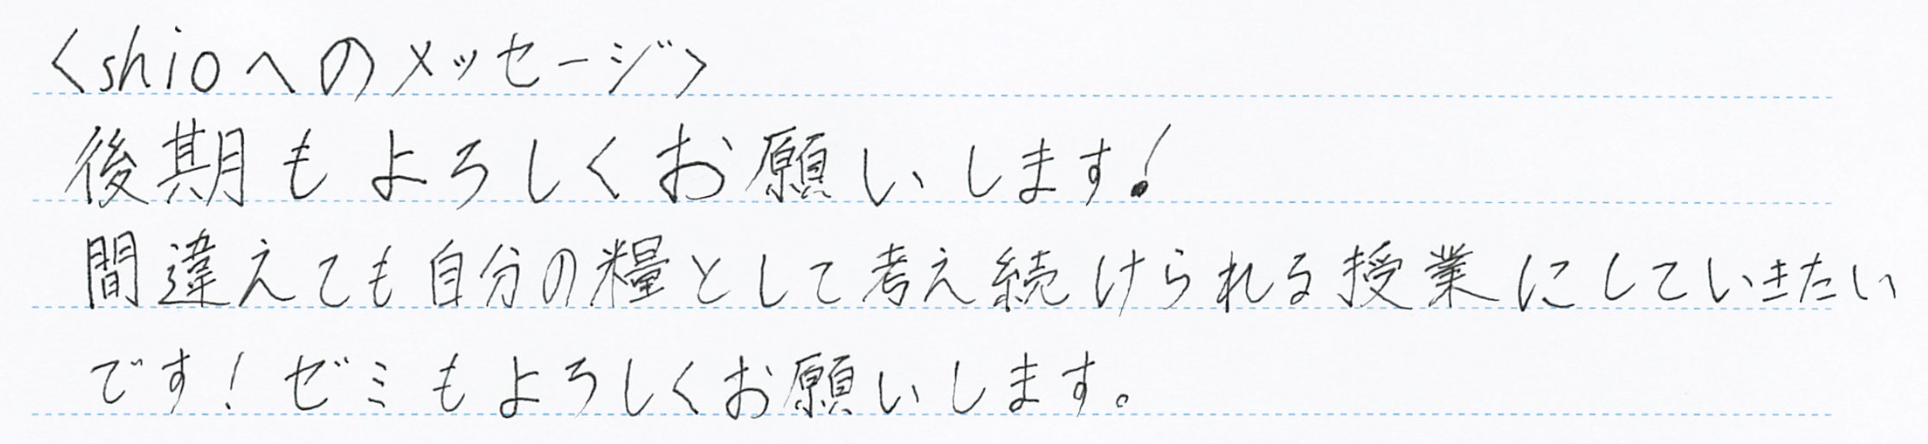 <shioへのメッセージ>
後期もよろしくお願いします!
間違えても自分の糧として考え続けられる授業にしていきたい
です!ゼミもよろしくお願いします。